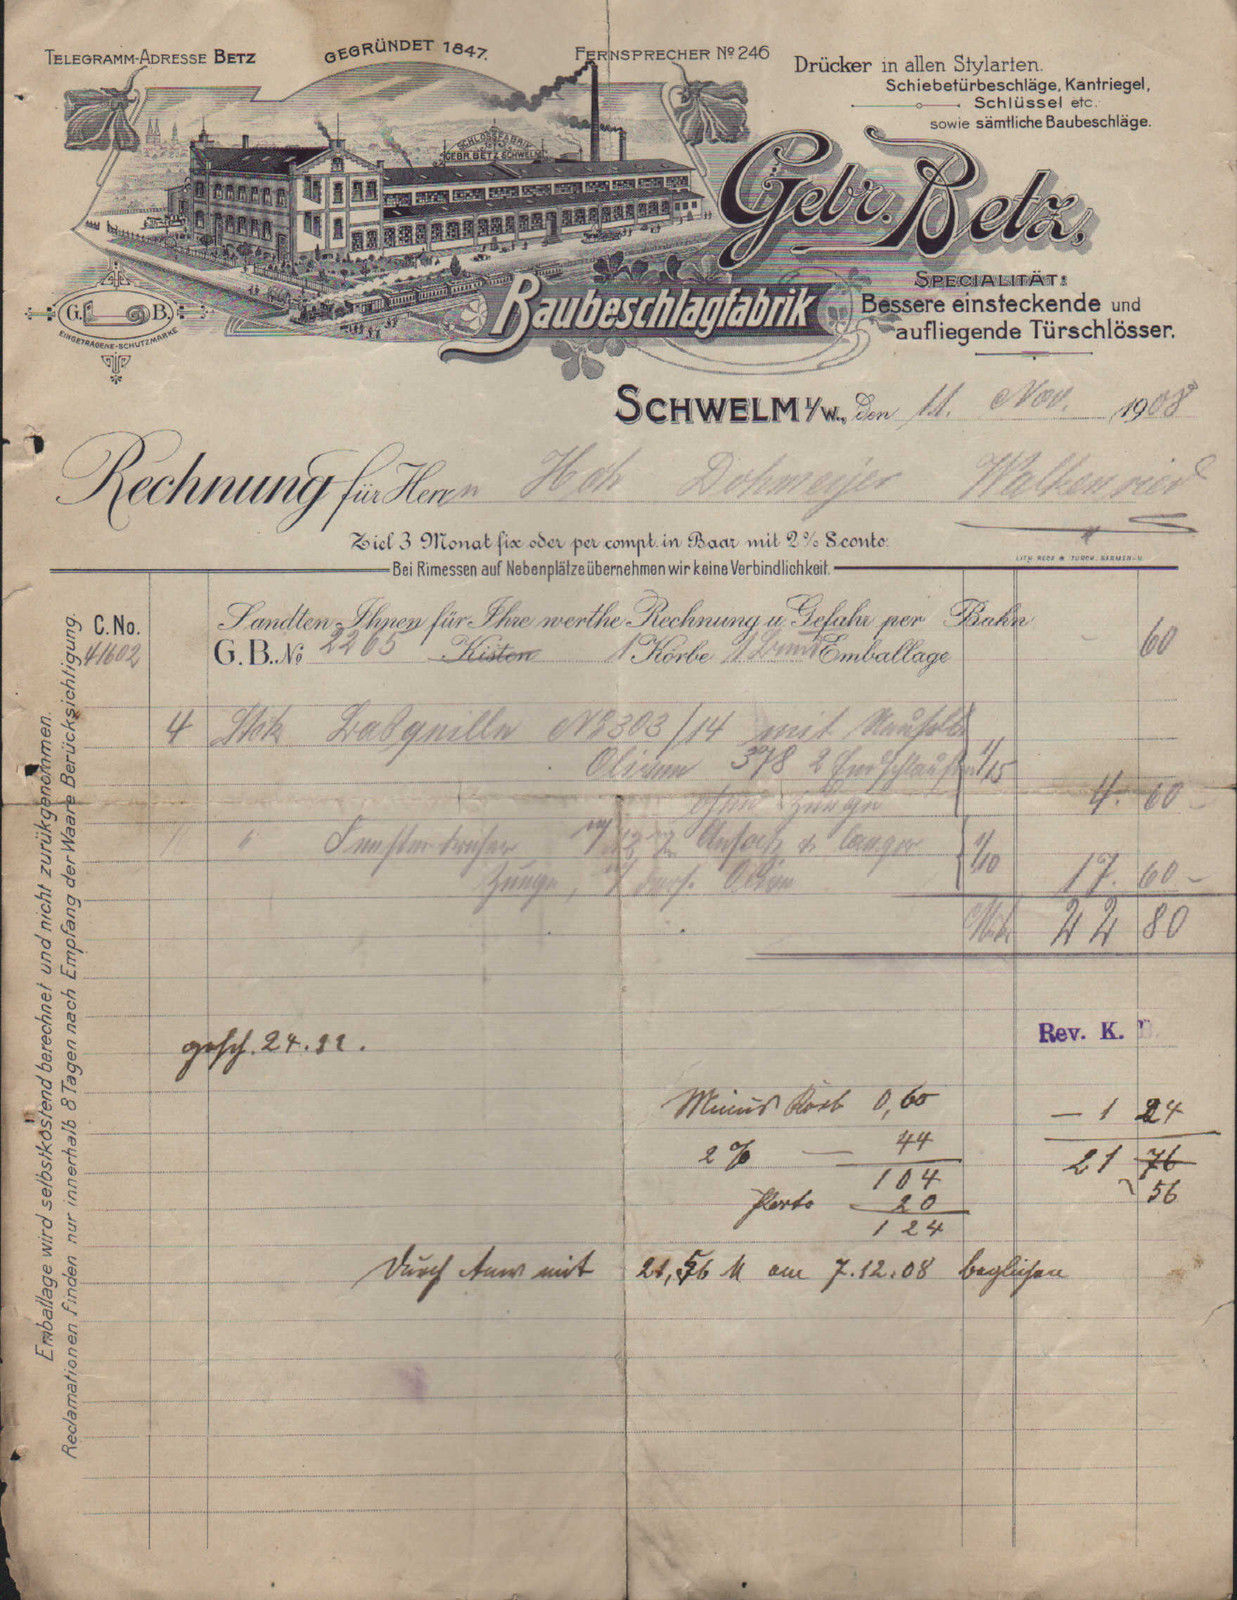 TELEGRAMM-ADRESSE BETZ
GEGRÜNDET 1847.
FERNSPRECHER No 246
Drücker in allen Stylarten.
Schiebetürbeschläge, Kantriegel,
Schlüssel etc.
sowie sämtliche Baubeschläge.
SCHLOSSFABRIK
GEBR. BETZ SCHWELM
Gebr. Betz,
Baubeschlagfabrik
SPECIALITÄT:
Bessere einsteckende und
aufliegende Türschlösser.
G. B.
EINGETRAGENE-SCHUTZMARKE
SCHWELM i/W., den 11. Nov. 1908
Rechnung für Herrn Hch Dohmeyer Walkenried
Ziel 3 Monat fix oder per compt. in Baar mit 2% Sconto.
LITH. BECK & TÜRCK, BARMEN-U.
Bei Rimessen auf Nebenplätze übernehmen wir keine Verbindlichkeit.
C. No. Sandten Ihnen für Ihre werthe Rechnung u. Gefahr per Bahn
41602 G. B. No 2265 Kisten 1 Körbe 1 Emballage - 60
4 Stck Basquille No 303/14 mit
Oliven 378 2 1/15
ohne Zunge 4. 60 -
11 " 1/10
Zunge, Olive 17. 60 -
Mk. 22 80
gesch. 24.11.
Rev. K. B.
Minus Korb 0,60 - 1 24
2% - 44 21 76
104 56
Porto 20
124
Durch Anw mit 21,56 M am 7.12.08 beglichen
Emballage wird selbstkostend berechnet und nicht zurükgenommen.
Reclamationen finden nur innerhalb 8 Tagen nach Empfang der Waare Berücksichtigung.